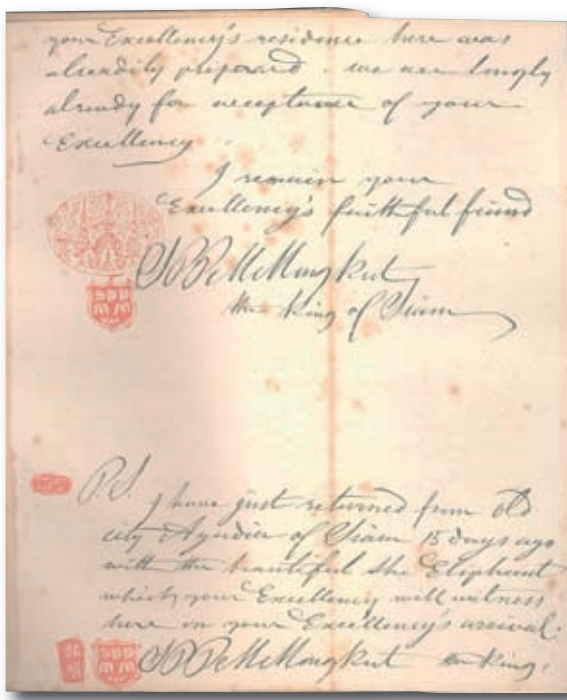 your Excellency's residence here was
alreadily prepared. we are longly
already for acceptance of your
Excellency.
I remain your
Excellency's faithful friend
S P P M Mongkut
the King of Siam
P.S.
I have just returned from old
city Ayudia of Siam 15 days ago
with the beautiful she Elephant
which your Excellency will witness
here on your Excellency's arrival.
S P P M Mongkut the King.